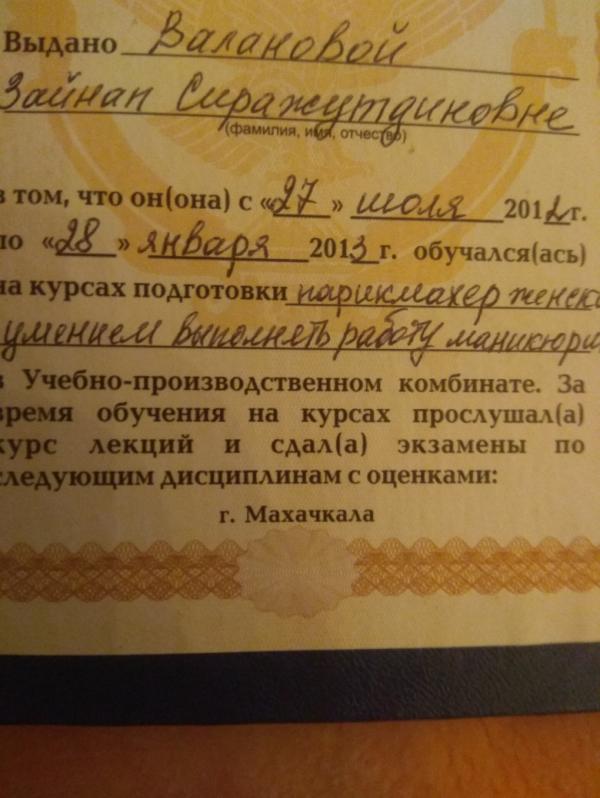 Выдано Валановой
Зайнап Сиражутдиновне
(фамилия, имя, отчество)
в том, что он(она) с «27» июля 2012г.
по «28» января 2013г. обучался(ась)
на курсах подготовки парикмахер женск
умением выполнять работу маникюрш
в Учебно-производственном комбинате. За
время обучения на курсах прослушал(а)
курс лекций и сдал(а) экзамены по
следующим дисциплинам с оценками:
г. Махачкала